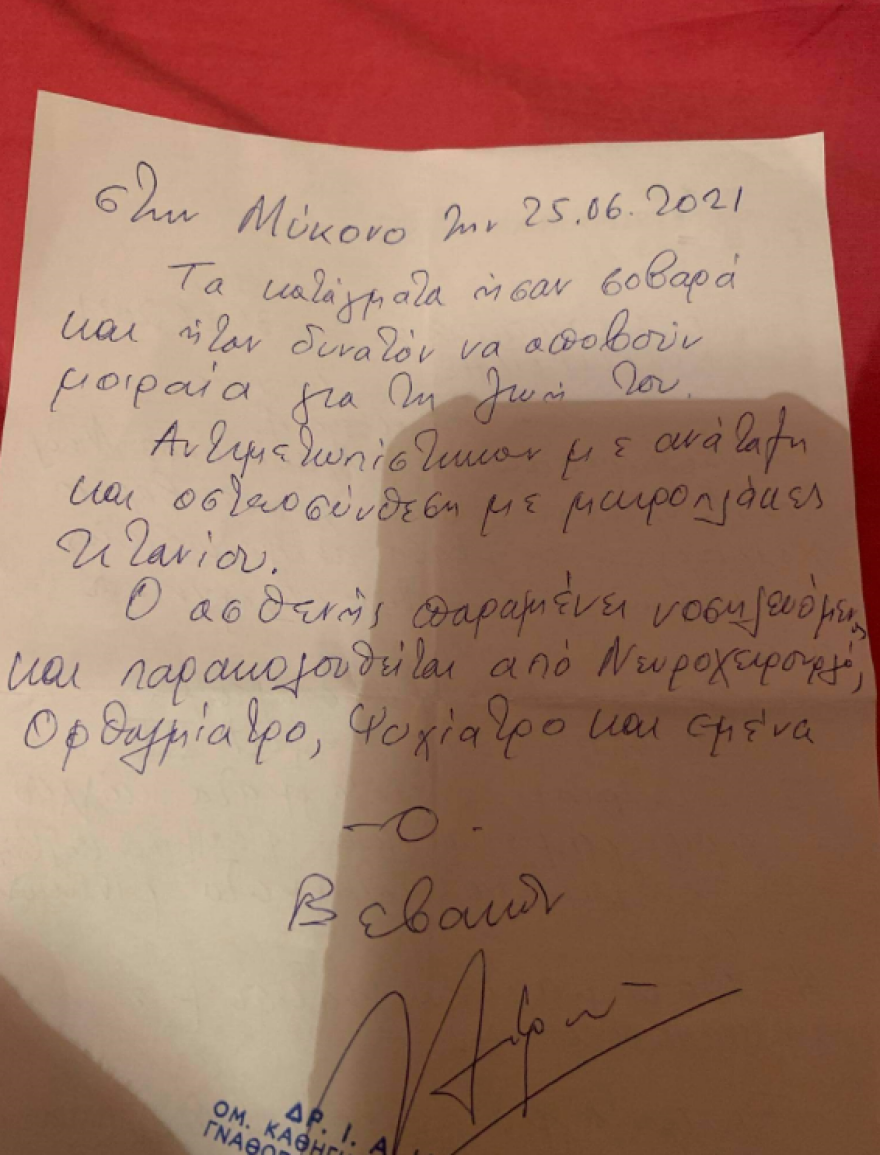 στην Μύκονο την 25.06.2021
Τα κατάγματα ήσαν σοβαρά
και ήταν δυνατόν να αποβούν
μοιραία για τη ζωή του.
Αντιμετωπίστηκαν με ανάταξη
και οστεοσύνθεση με μικροπλάκες
τιτανίου.
Ο ασθενής παραμένει νοσηλευόμενος
και παρακολουθείται από Νευροχειρουργό,
Οφθαλμίατρο, Ψυχίατρο και εμένα
—Ο -
Βεβαιών
ΔΡ. Ι. Α
ΟΜ. ΚΑΘΗΓΗ
ΓΝΑΘΟΠ